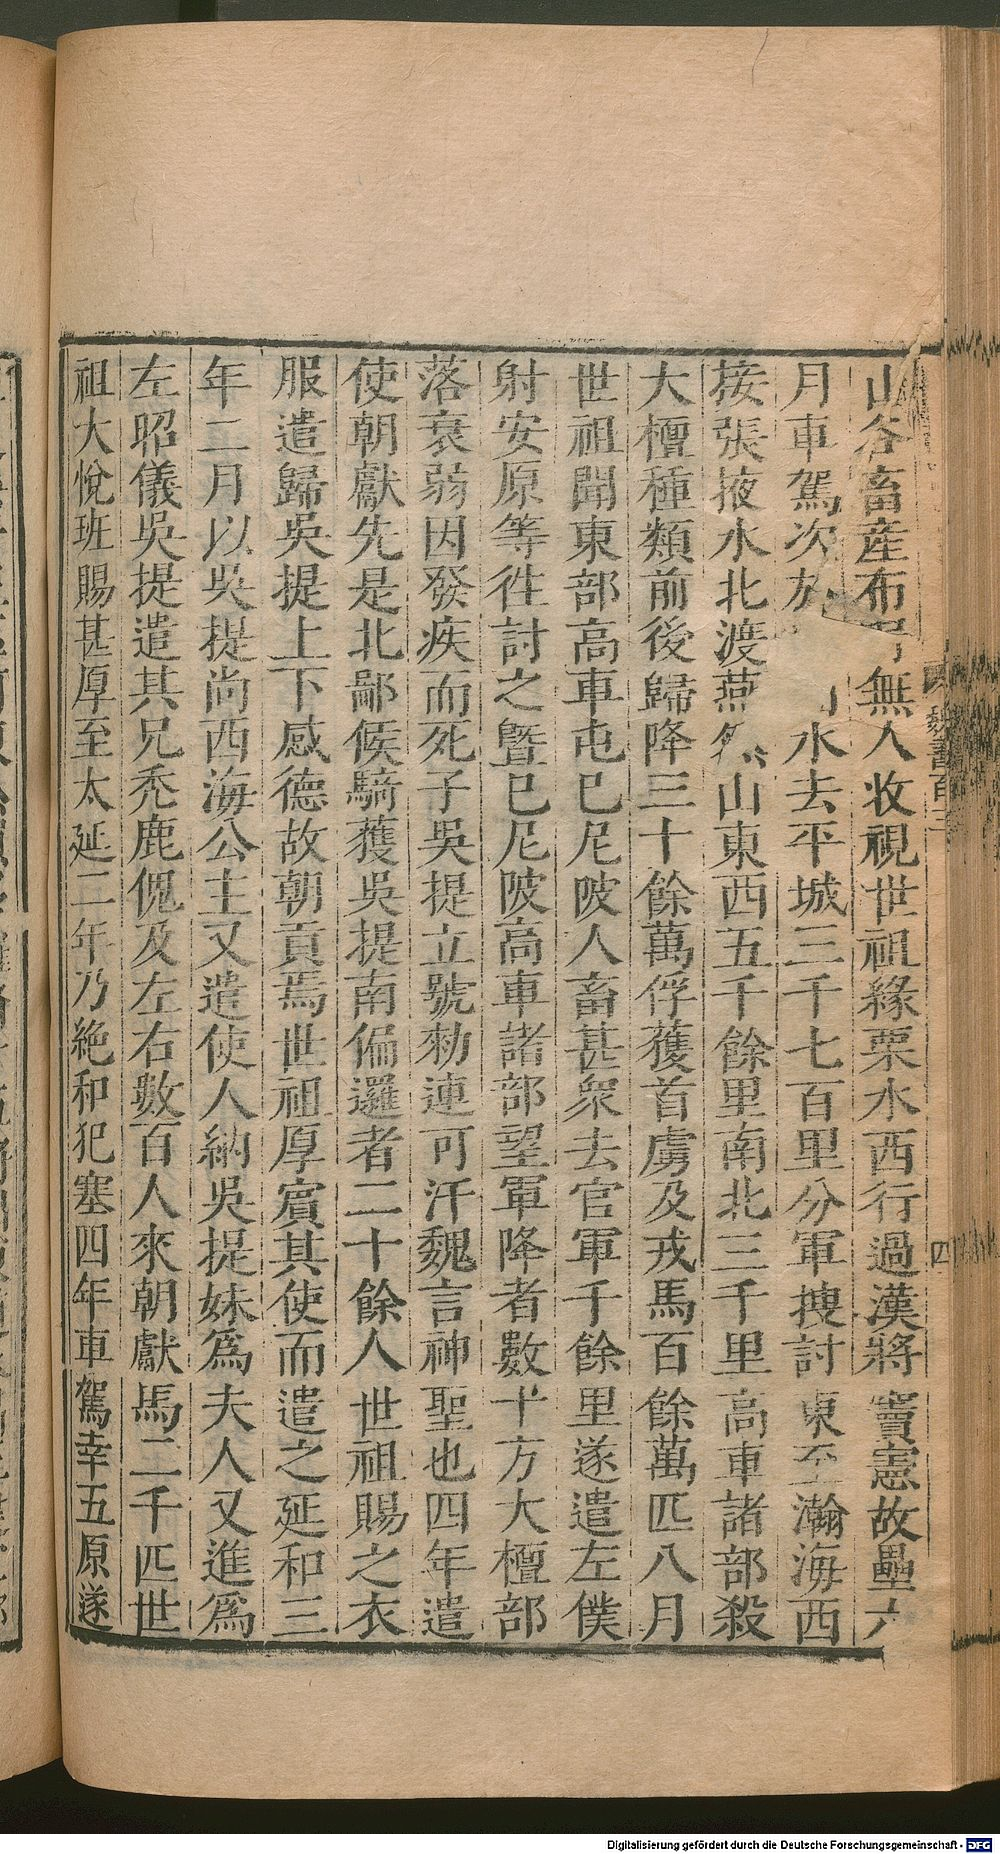 山谷畜産布野無人收視世祖緣栗水西行過漢將竇憲故壘六
月車駕次於水去平城三千七百里分軍搜討東至瀚海西
接張掖水北渡燕然山東西五千餘里南北三千里高車諸部殺
大檀種類前後歸降三十餘萬俘獲首虜及戎馬百餘萬匹八月
世祖聞東部高車屯巳尼陂人畜甚衆去官軍千餘里遂遣左僕
射安原等徃討之曁巳尼陂高車諸部望軍降者數十方大檀部
落衰弱因發疾而死子吳提立號勑連可汗魏言神聖也四年遣
使朝獻先是北鄙候騎獲吳提南偏邏者二十餘人世祖賜之衣
服遣歸吳提上下感德故朝貢焉世祖厚賓其使而遣之延和三
年二月以吳提尚西海公主又遣使人納吳提妹爲夫人又進爲
左昭儀吳提遣其兄禿鹿傀及左右數百人來朝獻馬二千匹世
祖大悅班賜甚厚至太延二年乃絶和犯塞四年車駕幸五原遂
魏書百三
四
Digitalisierung gefördert durch die Deutsche Forschungsgemeinschaft - DFG